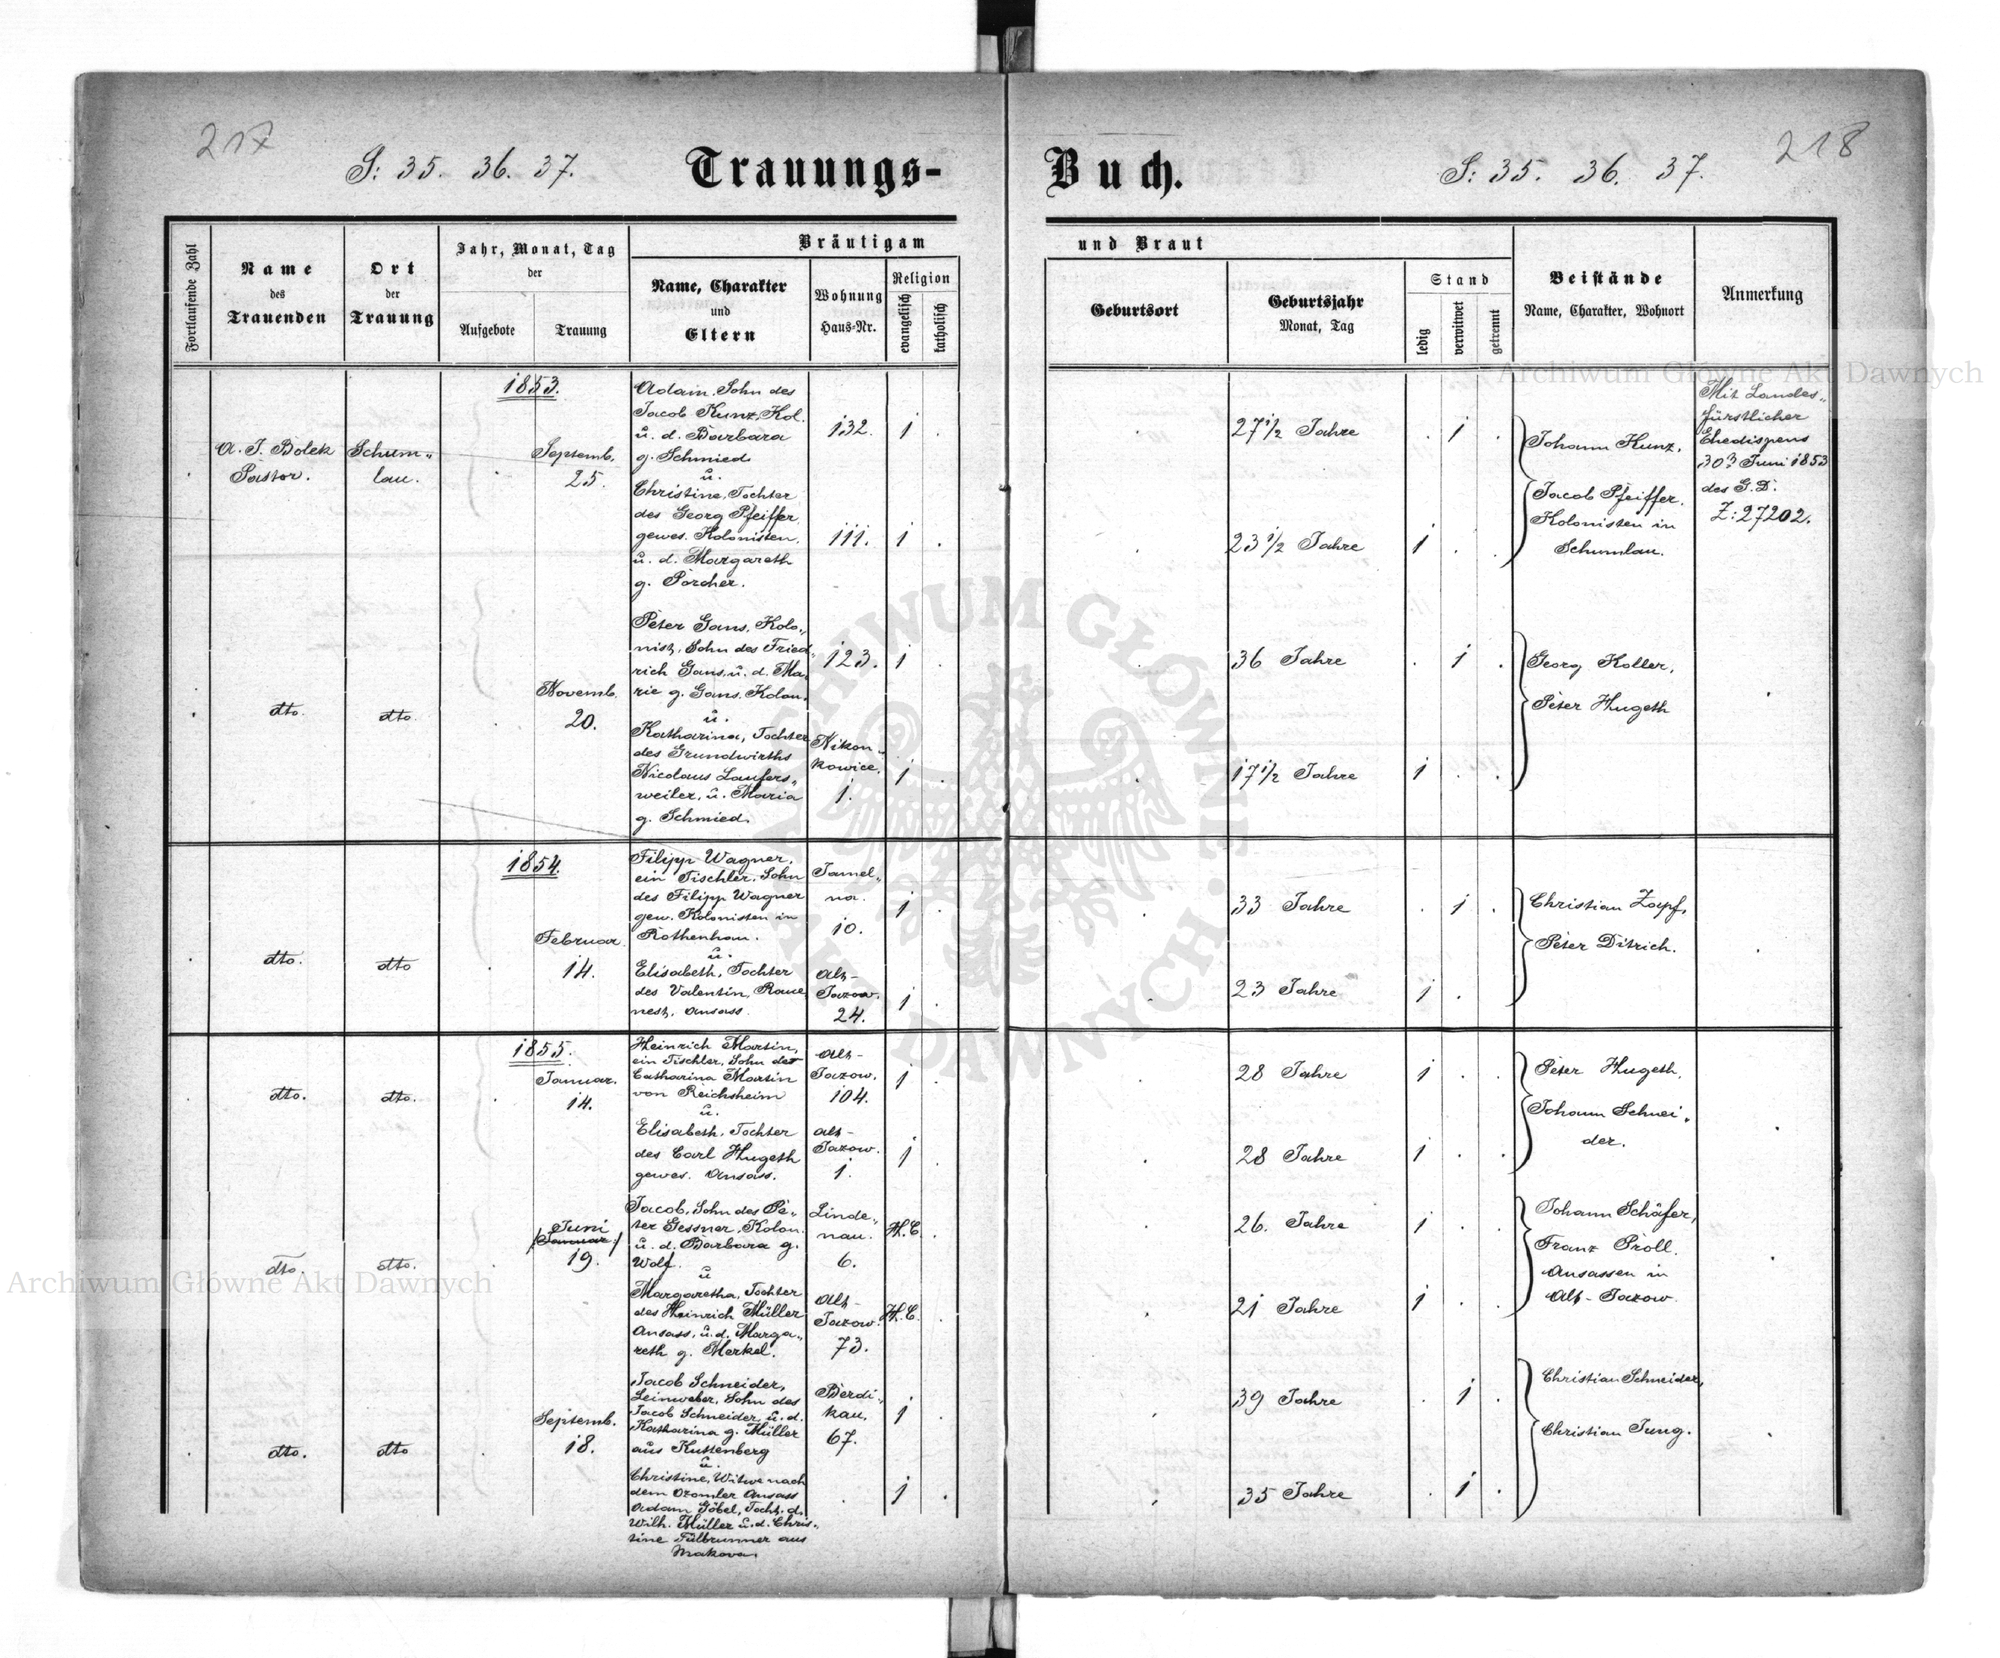 217
218
S: 35. 36. 37.
Trauungs-
Buch.
S: 35. 36. 37.
Fortlaufende Zahl
Name
des
Trauenden
Ort
der
Trauung
Jahr, Monat, Tag
der
Aufgebote
Trauung
Bräutigam
Name, Charakter
und
Eltern
Wohnung
Haus-Nr.
Religion
evangelisch
katholisch
und Braut
Geburtsort
Geburtsjahr
Monat, Tag
Stand
ledig
verwitwet
getrennt
Beistände
Name, Charakter, Wohnort
Anmerkung
1853.
A. J. Bolek
Pastor.
Schum„
lau.
Septemb.
25.
Adam, Sohn des
Jacob Kunz, Kol.
u. d. Barbara
g. Schmied.
u.
Christine, Tochter
des Georg Pfeiffer
gewes. Kolonisten,
u. d. Margareth
g. Porcher.
132. 1 .
111. 1 .
27 1/2 Jahre . 1 .
23 1/2 Jahre 1 . .
Johann Kunz,
Jacob Pfeiffer.
Kolonisten in
Schumlau.
Mit Landes„
fürstlicher
Ehedispens
30? Juni 1853
des G. D.
Z: 27202.
dto. dto.
Novemb.
20.
Peter Gans, Kolo„
nist, Sohn des Fried„
rich Gans, u. d. Ma„
rie g. Gans, Kolon.
u.
Katharina, Tochter
des Grundwirths
Nicolaus Laufers„
weiler, u. Maria
g. Schmied.
123. 1 .
Nikon„
kowice,
1.
1 .
36 Jahre . 1 .
17 1/2 Jahre 1 . .
Georg Koller,
Peter Hugeth
1854.
dto. dto
Februar
14.
Filipp Wagner,
ein Tischler, Sohn
des Filipp Wagner
gew. Kolonisten in
Rothenhan.
u.
Elisabeth, Tochter
des Valentin, Raue„
nest, Ansass.
Jamel„
na.
10.
1 .
Alt-
Jazow.
24.
1 .
33 Jahre . 1 .
23 Jahre 1 .
Christian Zapf,
Peter Ditrich.
1855.
dto. dto.
Januar.
14.
Heinrich Martin,
ein Tischler, Sohn der
Catharina Martin
von Reichsheim
u.
Elisabeth, Tochter
des Carl Hugeth
gewes. Ansass.
Alt-
Jazow.
104.
1 .
Alt-
Jazow.
1.
1 .
28 Jahre 1 . .
28 Jahre 1 . .
Peter Hugeth,
Johann Schnei„
der.
dto. dto.
Juni
/Januar/
19.
Jacob, Sohn des Pe„
ter Gessner, Kolon.
u. d. Barbara g.
Wolf.
u
Margaretha, Tochter
des Heinrich Müller
Ansass, u. d. Marga„
reth g. Merkel.
Linde„
nau.
6.
H. C. .
Alt-
Jazow.
73.
H. C. .
26. Jahre 1 . .
21 Jahre 1 . .
Johann Schäfer,
Franz Proll.
Ansassen in
Alt-Jazow.
dto. dto
Septemb.
18.
Jacob Schneider,
Leinweber, Sohn des
Jacob Schneider, u. d.
Katharina g. Müller
aus Kuttenberg
u.
Christine, Witwe nach
dem Ozomler Ansass
Adam Göbel, Tocht. d.
Wilh. Müller u. d. Chris„
tine Fülbrunner aus
Makova.
Berdi„
kau,
67.
1 .
1 .
39 Jahre . 1 .
35 Jahre . 1 .
Christian Schneider,
Christian Jung.
Archiwum Główne Akt Dawnych
Archiwum Główne Akt Dawnych
ARCHIWUM GŁÓWNE AKT DAWNYCH